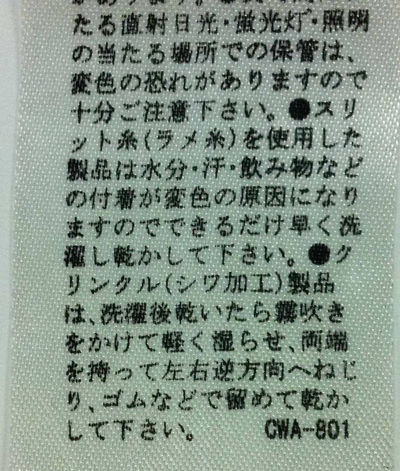 たる直射日光・蛍光灯・照明
の当たる場所での保管は、
変色の恐れがありますので
十分ご注意下さい。●スリ
ット糸(ラメ糸)を使用した
製品は水分・汗・飲み物など
の付着が変色の原因になり
ますのでできるだけ早く洗
濯し乾かして下さい。●ク
リンクル(シワ加工)製品
は、洗濯後乾いたら霧吹き
をかけて軽く湿らせ、両端
を持って左右逆方向へねじ
り、ゴムなどで留めて乾か
して下さい。 CWA-801